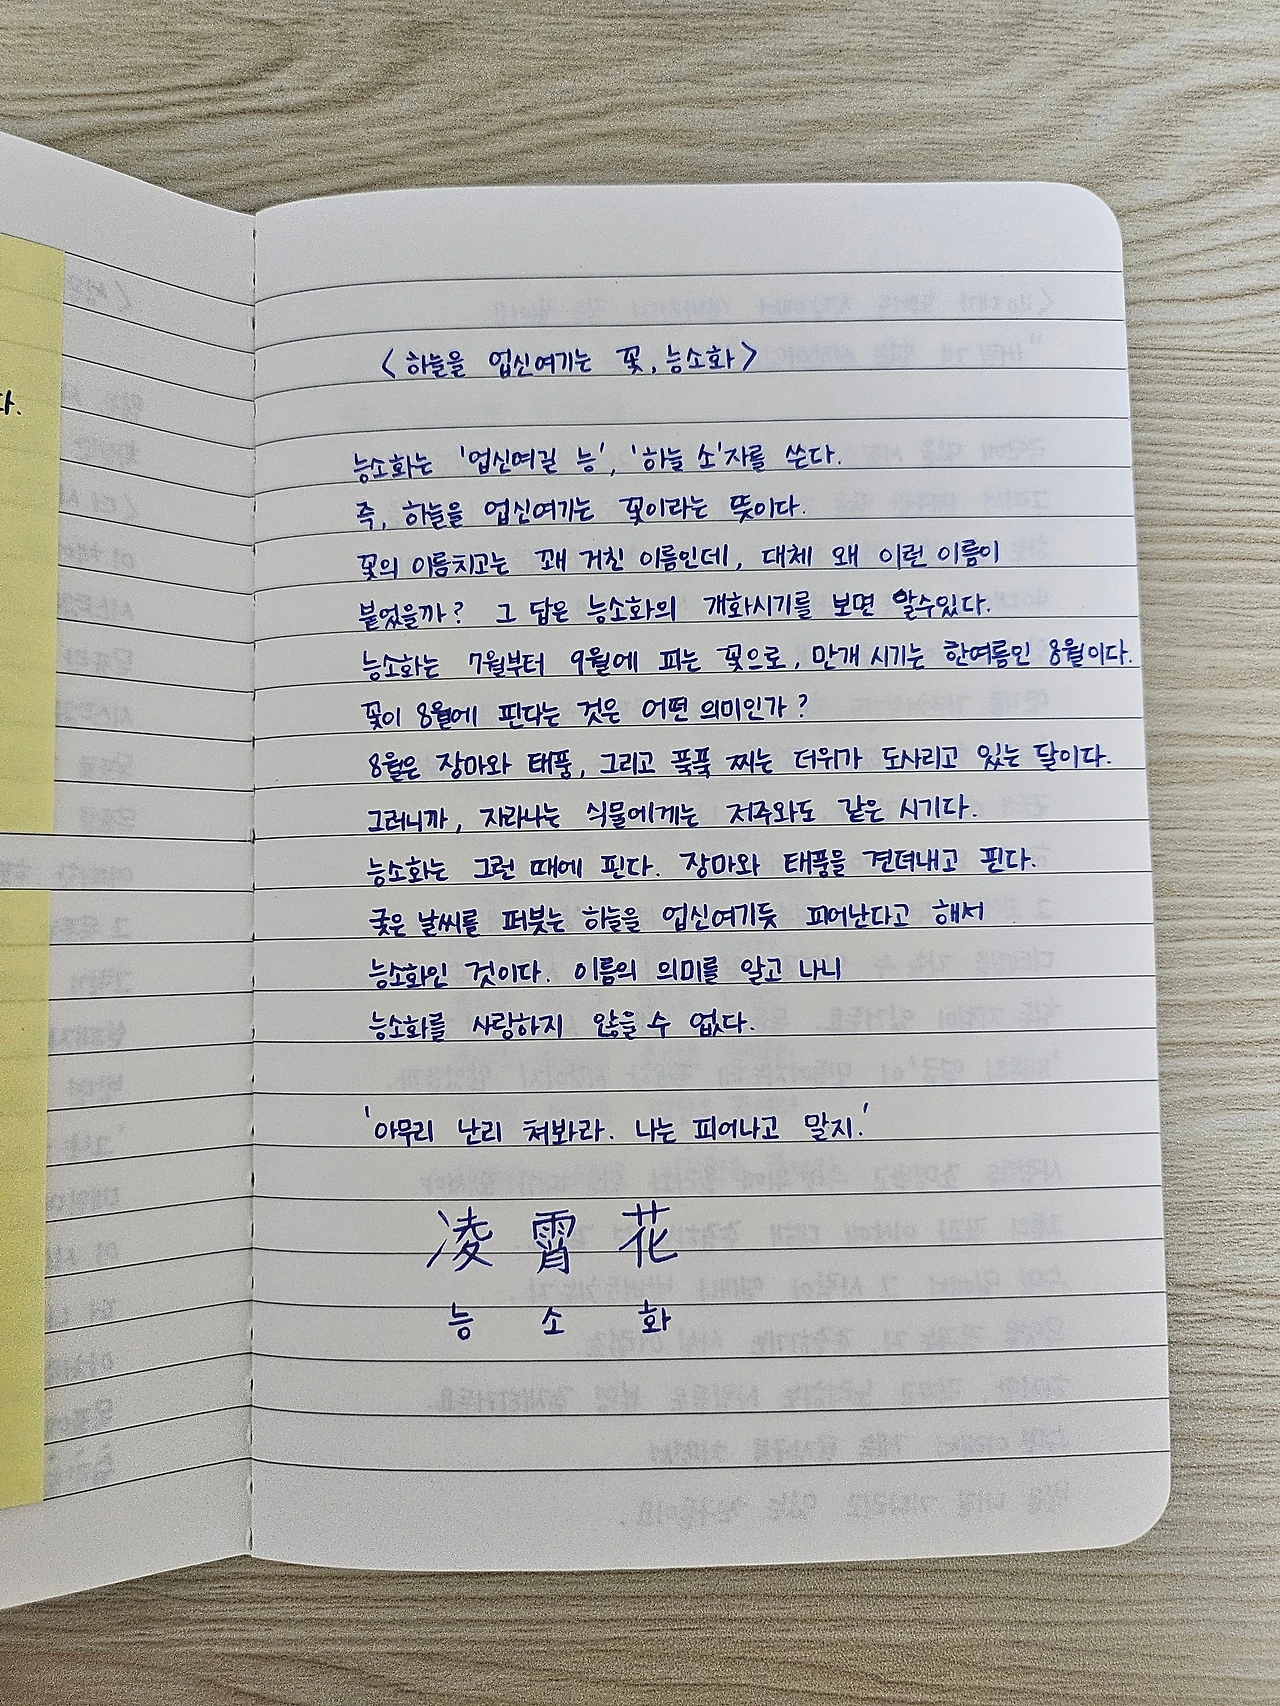 다.
<하늘을 업신여기는 꽃, 능소화>
능소화는 '업신여길 능', '하늘 소'자를 쓴다.
즉, 하늘을 업신여기는 꽃이라는 뜻이다.
꽃의 이름치고는 꽤 거친 이름인데, 대체 왜 이런 이름이
붙었을까? 그 답은 능소화의 개화시기를 보면 알수있다.
능소화는 7월부터 9월에 피는 꽃으로, 만개 시기는 한여름인 8월이다.
꽃이 8월에 핀다는 것은 어떤 의미인가?
8월은 장마와 태풍, 그리고 푹푹 찌는 더위가 도사리고 있는 달이다.
그러니까, 자라나는 식물에게는 저주와도 같은 시기다.
능소화는 그런 때에 핀다. 장마와 태풍을 견뎌내고 핀다.
궂은 날씨를 퍼붓는 하늘을 업신여기듯 피어난다고 해서
능소화인 것이다. 이름의 의미를 알고 나니
능소화를 사랑하지 않을 수 없다.
'아무리 난리 쳐봐라. 나는 피어나고 말지.'
凌霄花
능 소 화